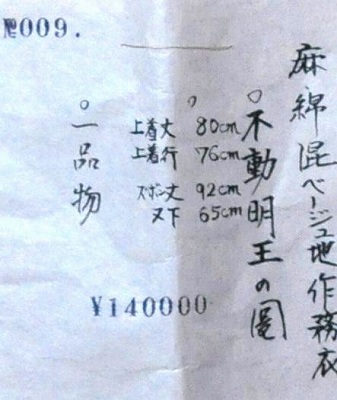 麻綿混ベージュ地作務衣
○不動明王の図
上着丈 80cm
上着行 76cm
ズボン丈 92cm
又下 65cm
○一品物
009.
¥140000